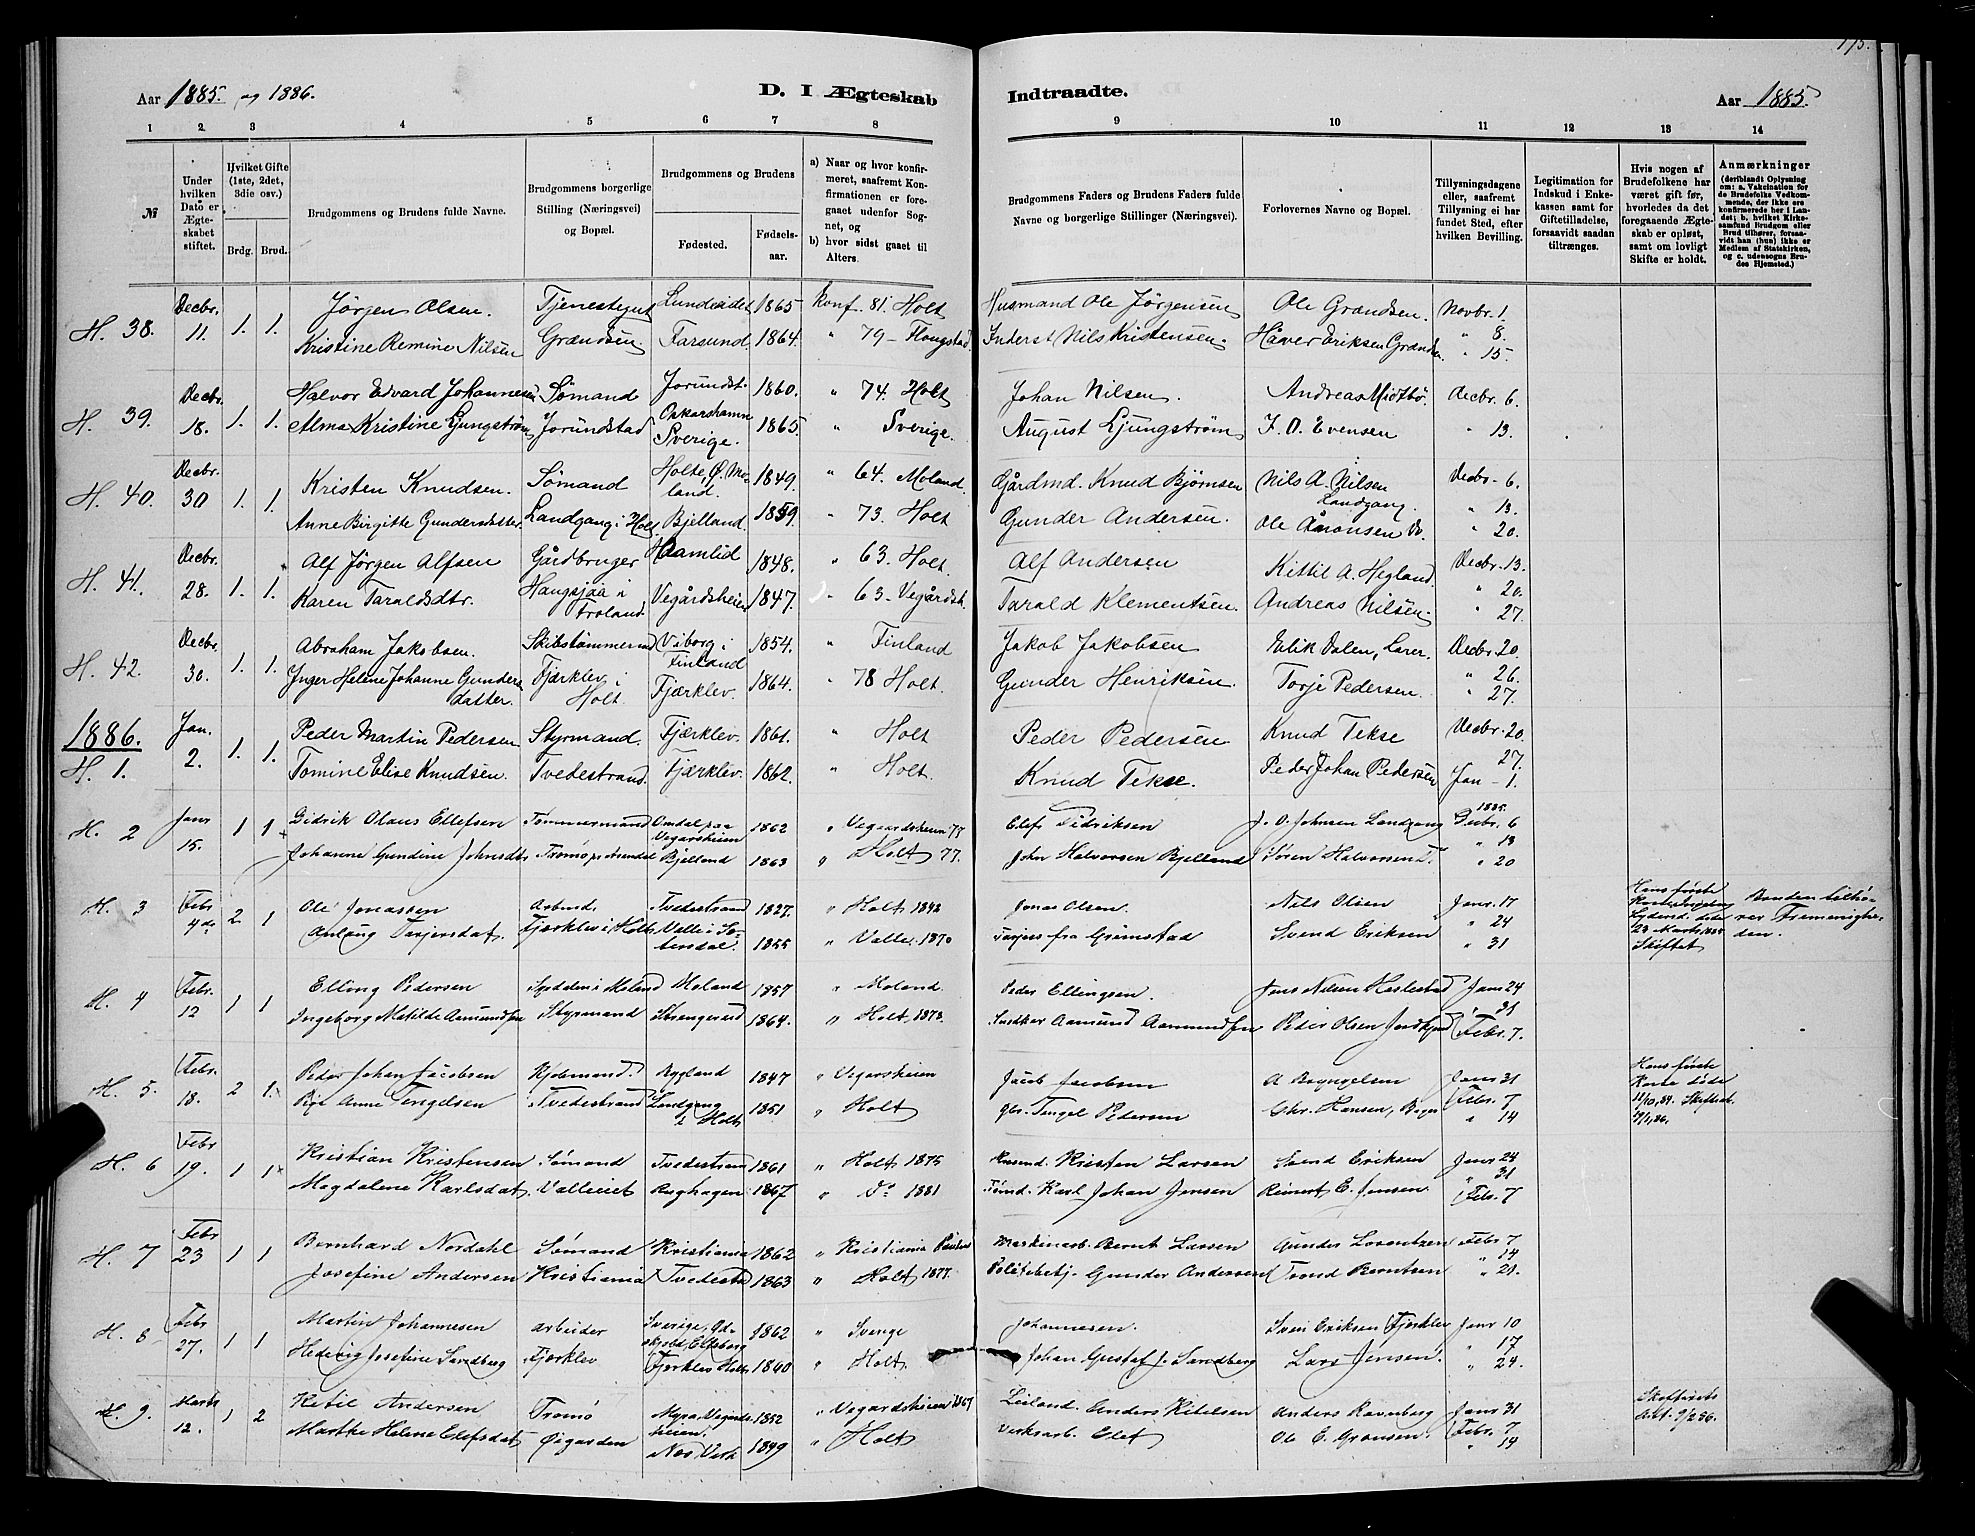 175.
Aar 1885. og 1886. D. I Ægteskab Indtraadte. Aar 1885.
1 2. 3 4 5 6 7 8 9 10 11 12 13 14
№
Under hvilken Dato er Ægteskabet stiftet.
Hvilket Gifte (1ste, 2det, 3die osv.)
Brdg. Brud.
Brudgommens og Brudens fulde Navne.
Brudgommens borgerlige Stilling (Næringsvei) og Bopæl.
Brudgommens og Brudens
Fødested. Fødselsaar.
a) Naar og hvor konfirmeret, saafremt Konfirmationen er foregaaet udenfor Sognet, og
b) hvor sidst gaaet til Alters.
Brudgommens Faders og Brudens Faders fulde Navne og borgerlige Stillinger (Næringsvei).
Forlovernes Navne og Bopæl.
Tillysningsdagene eller, saafremt Tillysning ei har fundet Sted, efter hvilken Bevilling.
Legitimation for Indskud i Enkekassen samt for Giftetilladelse, forsaavidt saadan tiltrænges.
Hvis nogen af Brudefolkene har været gift før, hvorledes da det foregaaende Ægteskab er opløst, samt om lovligt Skifte er holdt.
Anmærkninger (deriblandt Oplysning om: a. Vakcination for de Brudefolks Vedkommende, der ikke ere konfirmerede her i Landet; b. hvilket Kirkesamfund Brudgom eller Brud tilhører, forsaavidt han (hun) ikke er Medlem af Statskirken, og c. udensogns Brudes Hjemsted.)
H. 38. Decbr. 11. 1. 1. Jörgen Olsen. Tjenestegut Lundeidet 1865 Konf. 81. Holt Husmand Ole Jörgensen Ole Grændsen. Novbr. 1.
Kristine Remine Nilsen Grændsen. Farsund. 1864. " 79 - Inderst Nils Kristensen. Håver Eriksen " 8. " 15.
H. 39. Decbr. 18. 1. 1. Halvor Edvard Johannesen Sömand Jorundst. 1860. " 74. Holt Johan Nilsen. Andreas Midtbö. Decbr. 6.
Alma Kristine Ljungström Jorundstad Oskarshamn Sverige. 1865. " Sverige. August Ljungström J. O. Evensen " 13.
H. 40. Decbr. 30 1. 1. Kristen Knudsen. Sömand Holte, Ø. Moland. 1849. " 64. Moland. Gårdmd. Knud Björnsen Nils A. Nilsen Landgang. Decbr. 6.
Anne Birgitte Gundersdatter. Landgang i Holt Bjelland. 1859. " 73. Holt Gunder Andersen. Ole Aaronsen Do. " 13. " 20.
H. 41. Decbr. 28. 1. 1. Alf Jörgen Alfsen Gårdbruger Hamlid 1848. " 63. Holt. Alf Andersen Kittil A. Hegland. Decbr. 13.
Karen Taraldsdtr. Haugsjåa i Froland. Vegårdsheien 1847. " 63 - Vegårdsh. Tarald Klementsen. Andreas Nilsen. " 20. " 27.
H. 42. Decbr. 30. 1. 1. Abraham Jakobsen. Skibstömmermd Viborg i Finland 1854. " Finland Jakob Jakobsen Erik Dalen, Lærer. Decbr. 20.
Inger Helene Johanne Gundersdatter. Fjærklev i Holt. Fjærklev. 1864. " 78 Holt. Gunder Henriksen. Torje Pedersen. " 26. " 27.
1886.
H. 1. Jan. 2. 1. 1. Peder Martin Pedersen Styrmand. Fjærklev. 1861. " Holt Peder Pedersen Knud Tekse Decbr. 20.
Tomine Elise Knudsen. Tvedestrand. Fjærklev. 1862. " Holt. Knud Tekse. Peder Johan Pedersen 27. Jan - 1.
H. 2 Janr 15. 1 1 Didrik Olaus Ellefsen Tømmermand Omdal paa Vegarsheien 1862 " Vegaardsheien 77 Elef Didriksen J. O. Johnsen Landgang 1885. Decbr. 6
Johanne Gundine Johnsdtr. Tromø pr. Arendal Bjelland 1863 " Holt 77. John Halvorsen Bjelland Sören Halvorsen " 13 " 20
H. 3 Febr 4de 2 1 Ole Jonassen Arbeid. Tvedestrand 1827. " Holt 1842 Jonas Olsen. Nils Olsen Janr. 17 Hans første Skiftet Bruden tilhører Fremenigheden.
Anlaug Tarjersdat. Fjærklev i Holt Valle i Sætersdal. 1855 " Valle. 1870 Tarjers fra Grimstad Svend Eriksen " 24 " 31
H. 4 Febr. 12 1 1 Elling Pedersen Moland 1857 " Moland. Peder Ellingsen. Jens Nilsen Janr 24
Ingeborg Matilde Aamundsen Styrmand Strengereid 1864. " Holt, 1878. Aamund Aamundsen Peder Olsen 31 Febr. 7.
H. 5. Febr. 18. 2 1. Peder Johan Jacobsen Kjøbmand. Rygland 1847 " Vegarsheien Jacob Jacobsen A Bryngelsen Janr 31 Hans første Kone døde
Anne Tengelsen Tvedestrand Landgang i Holt 1851 " Holt Tengel Pedersen Chr. Hansen, Febr. 7 " 14
H. 6 Febr 19. 1 1 Kristian Kristensen Sømand Tvedestrand 1861 " Holt 1875 Kristen Larsen Svend Eriksen Janr 24
Magdalene Karlsdat. Valleviet Berghagen 1867 " Do 1881 Karl Johan Jensen Reinert E. Jensen " 31 Febr. 7
H. 7 Febr 23 1 1 Bernhard Nordahl Sømand Kristiania 1862 " Kristiania Maskinarb. Bernt Larsen Gunder Lorentzen Febr. 7
Josefine Andersen Kristiania Tvedestr. 1863 " Holt 1877. Politibetj. Gunder Andersen Trond Berntsen " 14 " 21.
H. 8 Febr 27. 1 1 Martin Johannesen arbeider Sverige, 1862 " Sverige Johannesen. Sven Eriksen Fjærklev Janr 10
Hedevig Josefine Sandberg Fjærklev Fjærklev Holt 1860 " Holt. Johan Gustaf J. Sandberg Lars Jensen. " 17 " 24.
H. 9. Marts 12. 1 2 Ketil Andersen Tromø Myra, Vegardsheien. 1852 " Vegardsheien 1867 Leiland. Anders Ketelsen Anders Ravnberg Janr 31
Marthe Helene Elefsdat. Øigarden Næs Verk 1849 " Holt Verksarb. Elef Ole E. Grønsen. Febr. 7 " 14